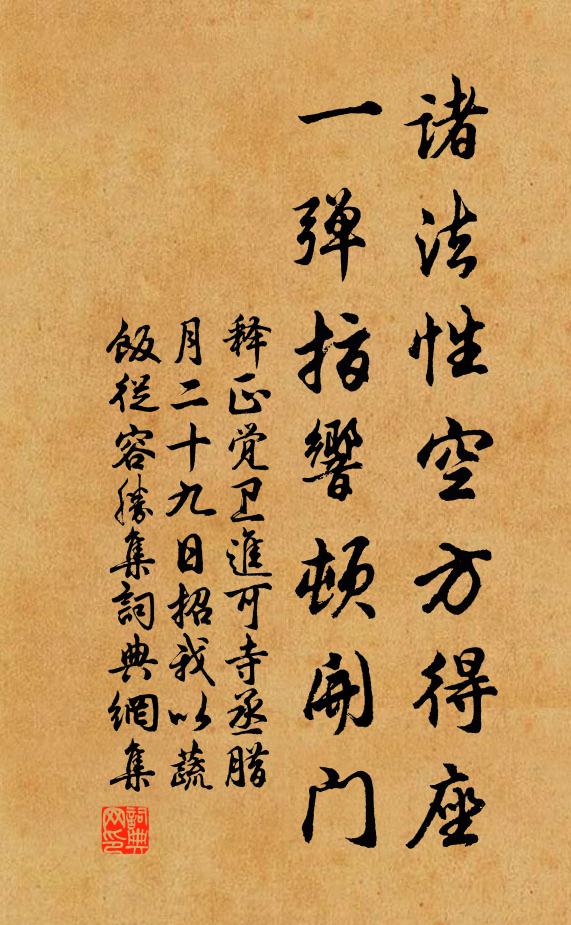 諸法性空方得座
一弹指響頓開门
释正觉卫進可寺丞腊
月二十九日招我以蔬
飯從容勝集詞典網集
詞典
网印